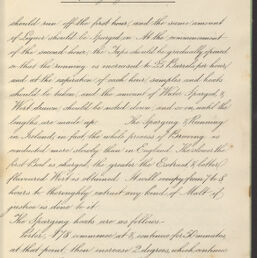 should run off the first hour, and the same amount
of Liquor should be Sparged on. At the commencement
of the second hour, the Taps should be gradually opened
so that the running is increased to 25 Barrels per hour
and at the expiration of each hour samples and heats
should be taken, and the amount of Water Sparged, &
Wort drawn, should be noted down, and so on, until the
lengths are made up. The Sparging & Running
in Ireland, in fact the whole process of Brewing is
conducted more slowly than in England. The slower the
first Beer is charged, the greater the Extract & better
flavoured Wort is obtained. It will occupy from 7 to 8
hours to thoroughly extract any kind of Malt if
justice is done to it.
The Sparging heats are as follows.
Porter, 178 commence at & continue for 50 minutes
at that point, then increase 2 degrees, which continue